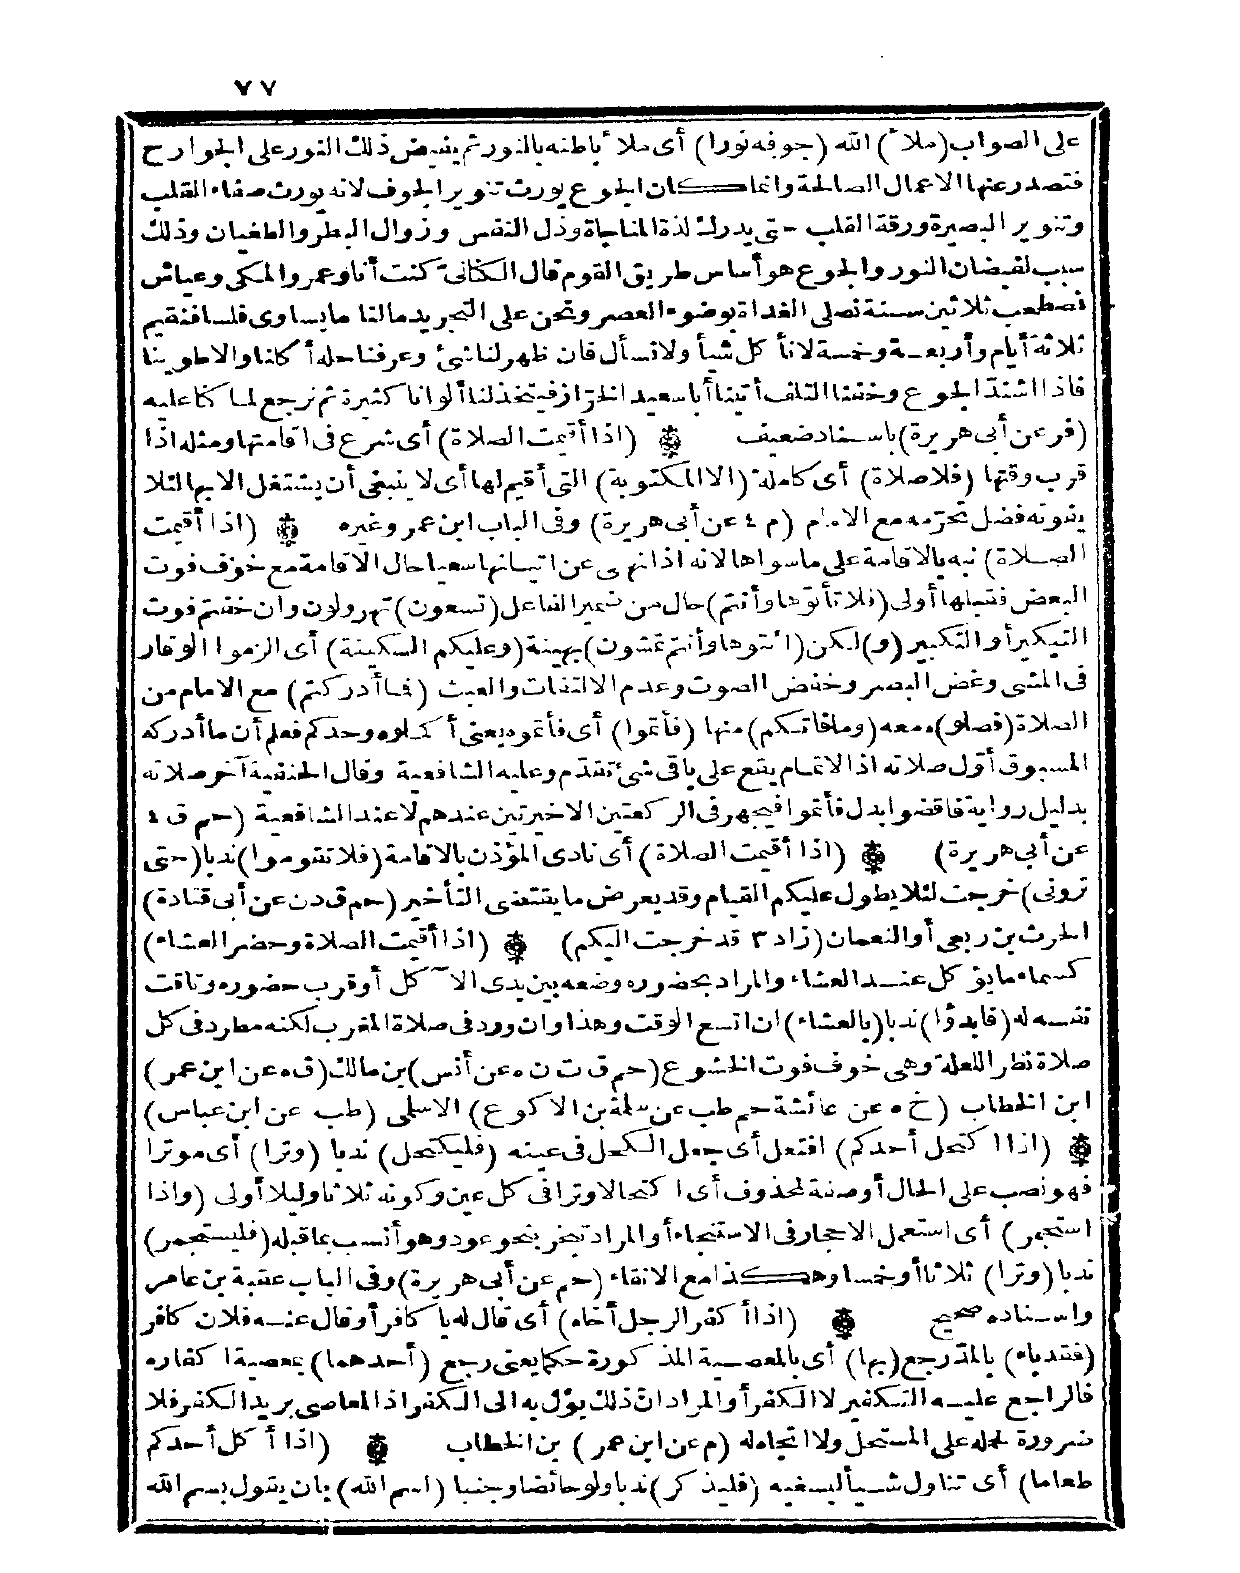 ٧٧
على الصواب (ملأ) الله (جوفه نورا) أى ملأ باطنه بالنور ثم يفيض ذلك النور على الجوارح
فتصدر عنها الاعمال الصالحة وانما كان الجوع يورث تنوير الجوف لانه يورث صفاء القلب
وتنوير البصيرة ورقة القلب حتى يدرك لذة المناجاة وذل النفس وزوال البطر والطغيان وذلك
سبب لفيضان النور والجوع هو أساس طريق القوم قال الكانى كنت أنا وعمرو المكى وعياش
نصطحب ثلاثين سنة نصلى الغداة بوضوء العصر ونحن على التجريد مالنا ما يساوى فلسا فنقيم
ثلاثة أيام وأربعة وخمسة لا نأكل شيأ ولا نسأل فان ظهر لنا شئ وعرفنا حله أكلنا والاطوينا
فاذا اشتد الجوع وخفنا التلف أتينا أبا سعيد الخراز فيتخذ لنا ألوانا كثيرة ثم نرجع لما كنا عليه
(فر عن أبى هريرة) باسناد ضعيف (اذا أقيمت الصلاة) أى شرع فى اقامتها ومثله اذا
قرب وقتها (فلا صلاة) أى كاملة (الا المكتوبة) التى أقيم لها أى لا ينبغى أن يشتغل الا بها لئلا
يفوته فضل تحرمه مع الامام (م ٤ عن أبى هريرة) وفى الباب ابن عمر وغيره (اذا أقيمت
الصلاة) نبه بالاقامة على ما سواها لانه اذا نهى عن اتيانها سعيا حال الاقامة مع خوف فوت
البعض فقبلها أولى (فلا تأتوها وأنتم) حال من ضمير الفاعل (تسعون) تهرولون وان خفتم فوت
التبكير أو التكبير (و) لكن (ائتوها وأنتم تمشون) بهينة (وعليكم السكينة) أى الزموا الوقار
فى المشى وغض البصر وخفض الصوت وعدم الالتفات والعبث (فما أدركتم) مع الامام من
الصلاة (فصلوا) معه (وما فاتكم) منها (فأتموا) أى فأتموه يعنى أكملوه وحدكم فعلم أن ما أدركه
المسبوق أول صلاته اذ الاتمام يقع على باقى شئ تقدم وعليه الشافعية وقال الحنفية آخر صلاته
بدليل رواية فاقضوا بدل فأتموا فيجهر فى الركعتين الاخيرتين عندهم لا عند الشافعية (حم ق ٤
عن أبى هريرة) (اذا أقيمت الصلاة) أى نادى المؤذن بالاقامة (فلا تقوموا) ندبا (حتى
ترونى) خرجت لئلا يطول عليكم القيام وقد يعرض ما يقتضى التأخير (حم ق د ن عن أبى قتادة)
الحرث بن ربعى أو النعمان (زاد ٣ قد خرجت اليكم) (اذا أقيمت الصلاة وحضر العشاء)
كسماء ما يؤكل عند العشاء والمراد بحضوره وضعه بين يدى الآكل أو قرب حضوره وتاقت
نفسه له (فابدؤا) ندبا (بالعشاء) ان اتسع الوقت وهذا وان ورد فى صلاة المغرب لكنه مطرد فى كل
صلاة نظر اللعلة وهى خوف فوت الخشوع (حم ق ت ن ه عن أنس) بن مالك (ق ه عن ابن عمر)
ابن الخطاب (خ ه عن عائشة حم طب عن سلمة بن الاكوع) الاسلمى (طب عن ابن عباس)
(اذا اكتحل أحدكم) افتعل أى جعل الكحل فى عينه (فليكتحل) ندبا (وترا) أى موترا
فهو نصب على الحال أو صفة لمحذوف أى اكتحالا وترا فى كل عين وكونه ثلاثا وليلا أولى (واذا
استجمر) أى استعمل الاحجار فى الاستنجاء أو المراد تبخر بنحو عود وهو أنسب بما قبله (فليستجمر)
ندبا (وترا) ثلاثا أو خمسا وهكذا مع الانقاء (حم عن أبى هريرة) وفى الباب عقبة بن عامر
واسناده صحيح (اذا أكفر الرجل أخاه) أى قال له يا كافر أو قال عنه فلان كافر
(فقد باء) بالمد رجع (بها) أى بالمعصية المذكورة حكما يعنى رجع (أحدهما) بمعصية اكفاره
فالراجع عليه التكفير لا الكفر أو المراد ان ذلك يؤل به الى الكفر اذ المعاصى بريد الكفر فلا
ضرورة لحمله على المستحل ولا اتجاه له (م عن ابن عمر) بن الخطاب (اذا أكل أحدكم
طعاما) أى تناول شيأ ليسغيه (فليذكر) ندبا ولو حائضا وجنبا (اسم الله) بان يقول بسم الله